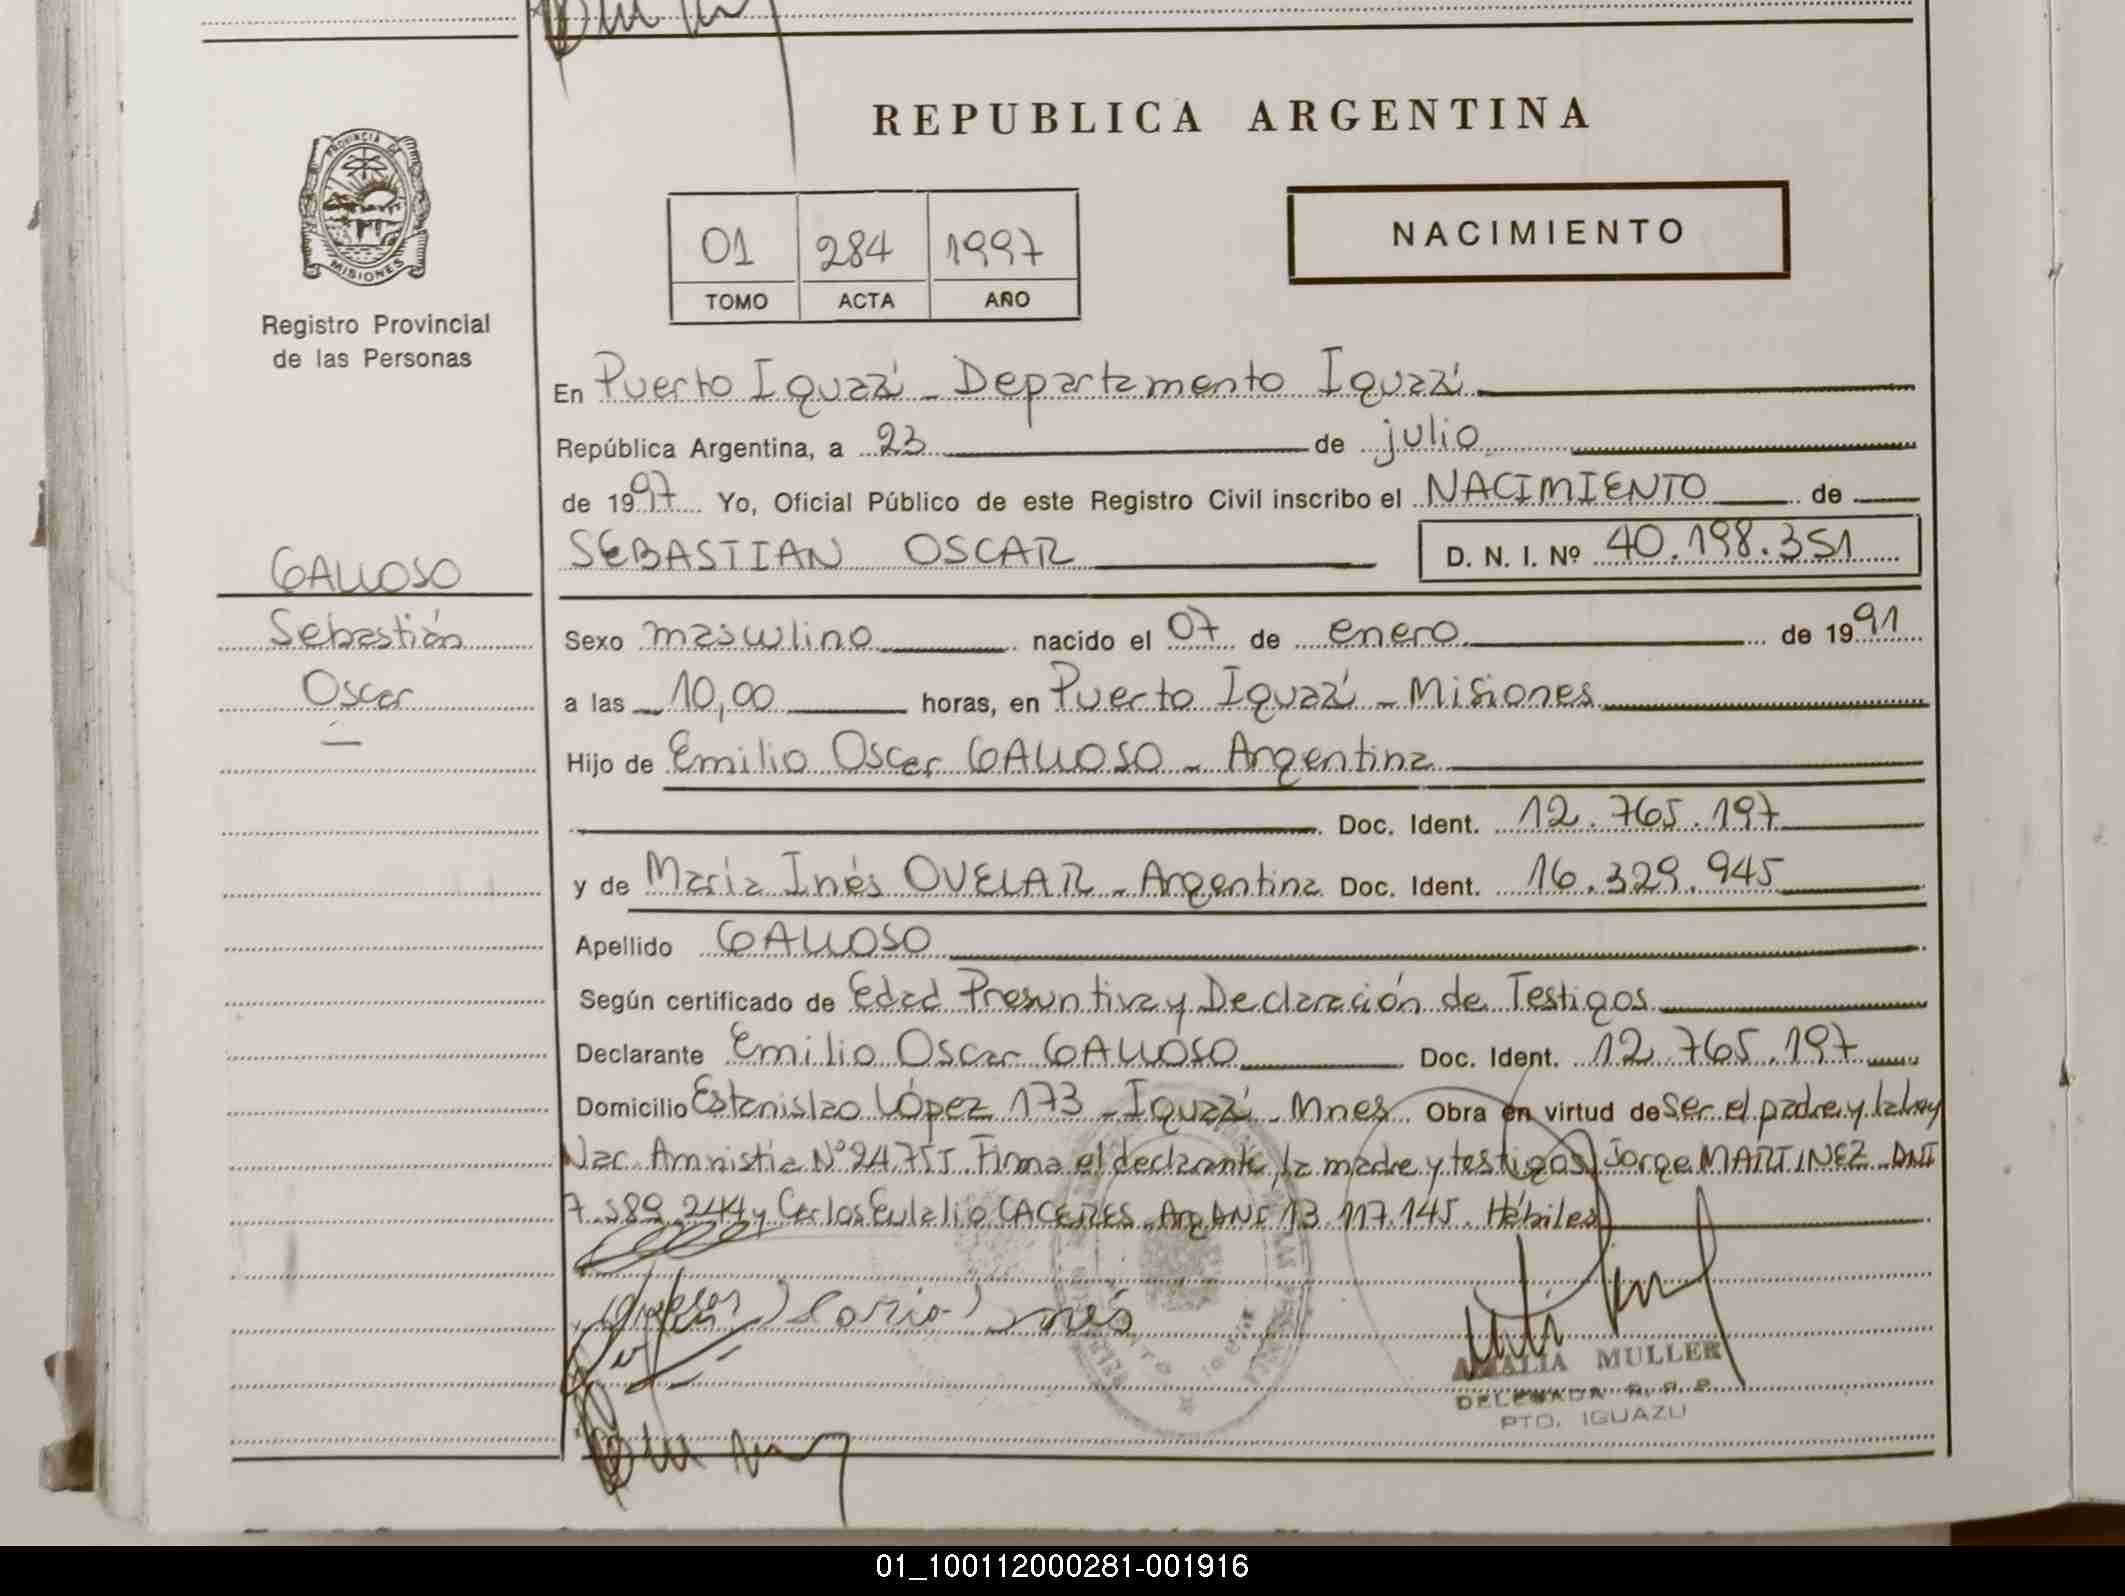 REPUBLICA ARGENTINA
PROVINCIA DE
MISIONES
Registro Provincial
de las Personas
01 284 1997
TOMO ACTA AÑO
NACIMIENTO
En Puerto Iguazú - Departamento Iguazú
República Argentina, a 23 de julio
de 1997 Yo, Oficial Público de este Registro Civil inscribo el NACIMIENTO de
SEBASTIAN OSCAR D. N. I. Nº 40.198.351
GALLOSO
Sebastián
Oscar
Sexo masculino nacido el 07 de enero de 1991
a las 10,00 horas, en Puerto Iguazú - Misiones
Hijo de Emilio Oscar GALLOSO - Argentina
Doc. Ident. 12.765.197
y de María Inés OVELAR - Argentina Doc. Ident. 16.329.945
Apellido GALLOSO
Según certificado de Edad Presuntiva y Declaración de Testigos
Declarante Emilio Oscar GALLOSO Doc. Ident. 12.765.197
Domicilio Estanislao López 173 - Iguazú - Mnes Obra en virtud de Ser el padre y la Ley
Nac. Amnistía Nº 24.755 Firma el declarante, la madre y testigos Jorge MARTINEZ DNI
7.589.244 y Carlos Eulalio CACERES Arg DNI 13.117.145. Hábiles
María Inés
AMALIA MULLER
DELEGADA R. R. P.
PTO. IGUAZU
01_100112000281-001916